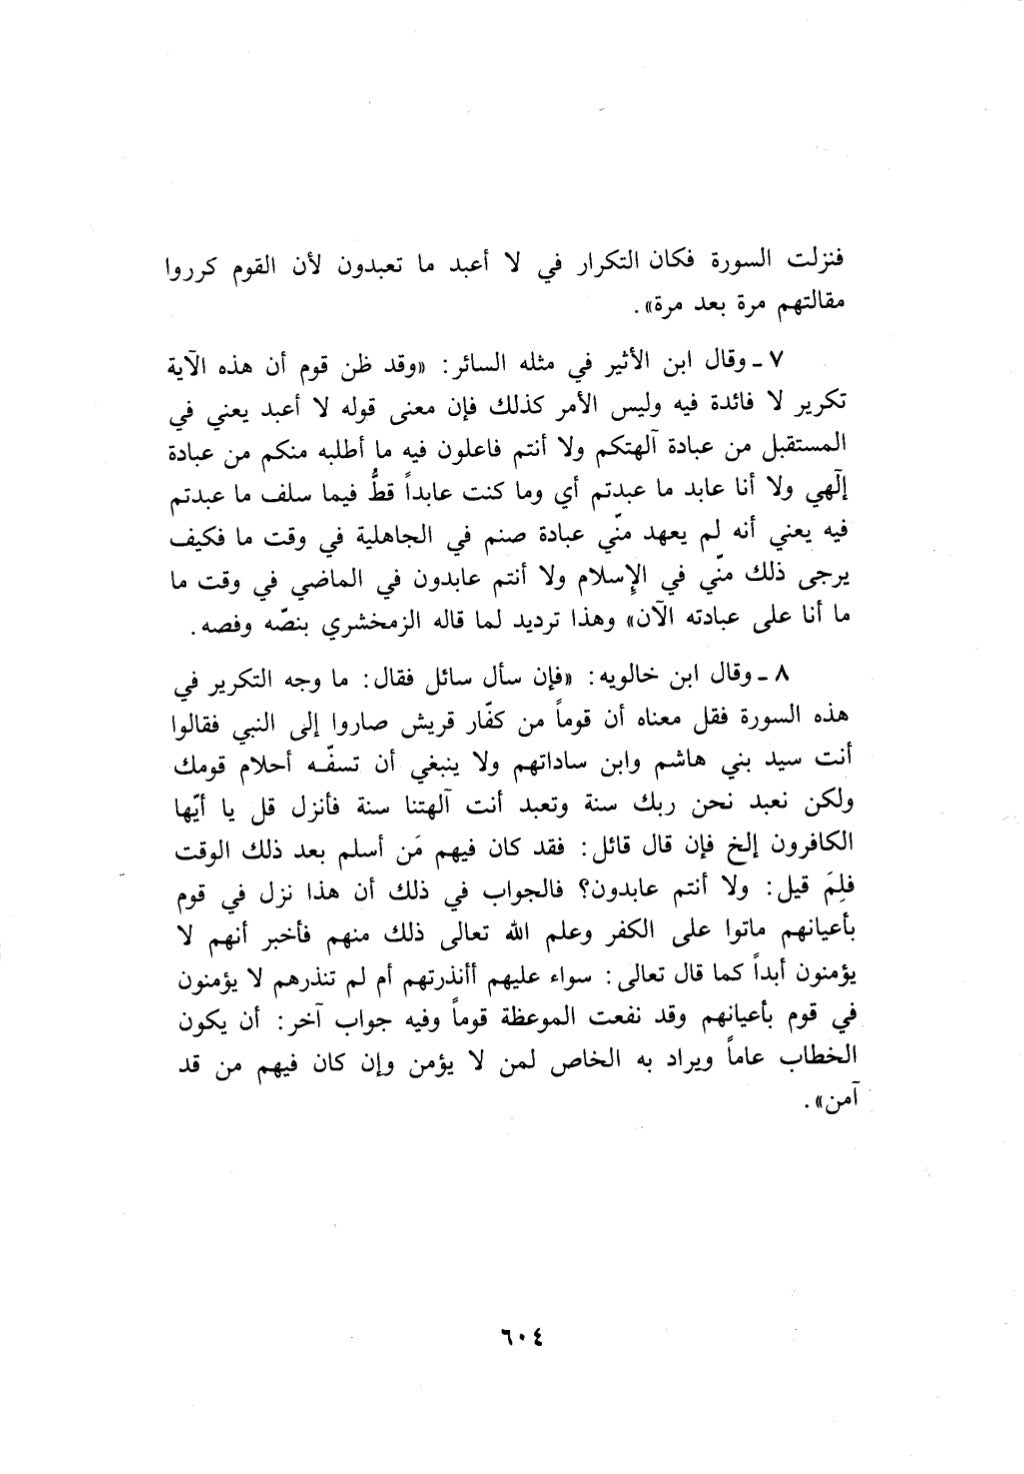 فنزلت السورة فكان التكرار في لا أعبد ما تعبدون لأن القوم كرروا
مقالتهم مرة بعد مرة».
٧ ـ وقال ابن الأثير في مثله السائر: «وقد ظن قوم أن هذه الآية
تكرير لا فائدة فيه وليس الأمر كذلك فإن معنى قوله لا أعبد يعني في
المستقبل من عبادة آلهتكم ولا أنتم فاعلون فيه ما أطلبه منكم من عبادة
إلٓهي ولا أنا عابد ما عبدتم أي وما كنت عابداً قطُّ فيما سلف ما عبدتم
فيه يعني أنه لم يعهد منّي عبادة صنم في الجاهلية في وقت ما فكيف
يرجى ذلك منّي في الإِسلام ولا أنتم عابدون في الماضي في وقت ما
ما أنا على عبادته الآن» وهذا ترديد لما قاله الزمخشري بنصّه وفصه.
٨ ـ وقال ابن خالويه: «فإن سأل سائل فقال: ما وجه التكرير في
هذه السورة فقل معناه أن قوماً من كفّار قريش صاروا إلى النبي فقالوا
أنت سيد بني هاشم وابن ساداتهم ولا ينبغي أن تسفّه أحلام قومك
ولكن نعبد نحن ربك سنة وتعبد أنت آلهتنا سنة فأنزل قل يا أيّها
الكافرون إلخ فإن قال قائل: فقد كان فيهم مَن أسلم بعد ذلك الوقت
فلِمَ قيل: ولا أنتم عابدون؟ فالجواب في ذلك أن هذا نزل في قوم
بأعيانهم ماتوا على الكفر وعلم الله تعالى ذلك منهم فأخبر أنهم لا
يؤمنون أبداً كما قال تعالى: سواء عليهم أأنذرتهم أم لم تنذرهم لا يؤمنون
في قوم بأعيانهم وقد نفعت الموعظة قوماً وفيه جواب آخر: أن يكون
الخطاب عاماً ويراد به الخاص لمن لا يؤمن وإن كان فيهم من قد
آمن».
٦٠٤